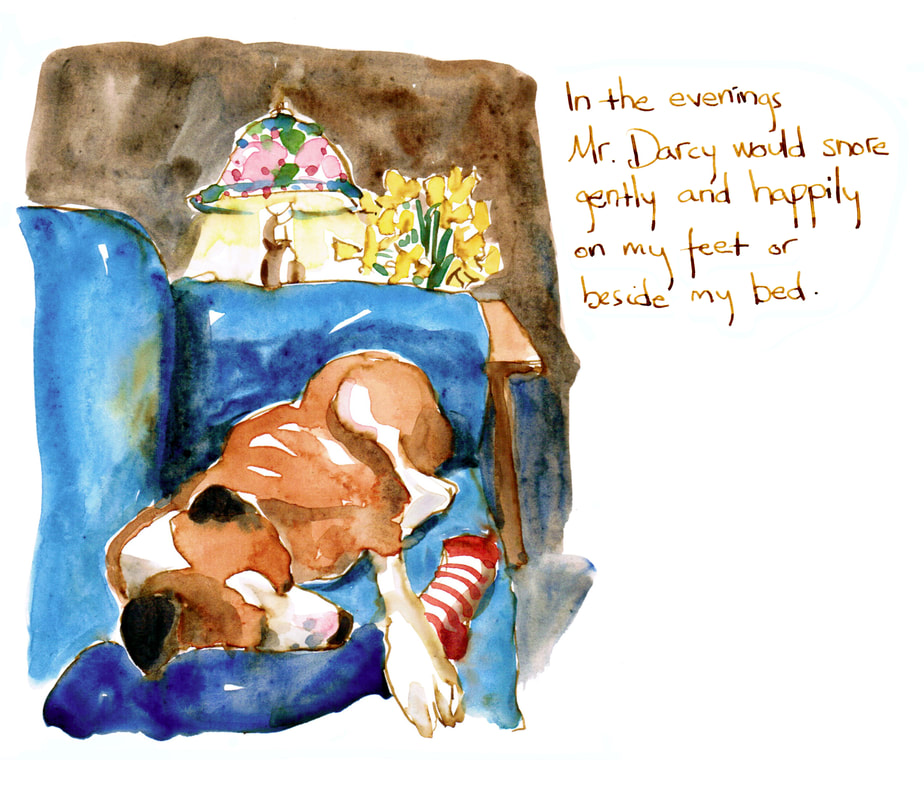 In the evenings
Mr. Darcy would snore
gently and happily
on my feet or
beside my bed.